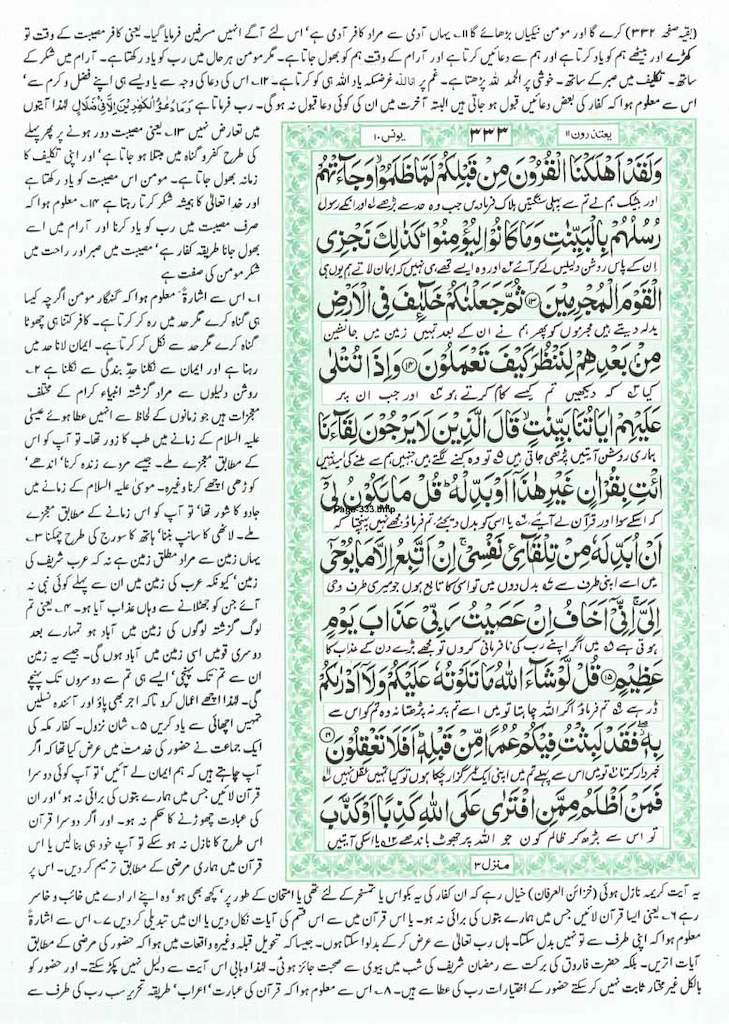 (بقیہ صفحہ ۳۳۲) کرے گا اور مومن نیکیاں بڑھائے گا ۱۱۔ یہاں آدمی سے مراد کافر آدمی ہے' اس لئے آگے انہیں مسرفین فرمایا گیا۔ یعنی کافر مصیبت کے وقت تو
کھڑے اور بیٹھے ہم کو یاد کرتا ہے اور ہم سے دعائیں کرتا ہے اور آرام کے وقت ہم کو بھول جاتا ہے۔ مگر مومن ہر حال میں رب کو یاد رکھتا ہے۔ آرام میں شکر کے
ساتھ۔ تکلیف میں صبر کے ساتھ۔ خوشی پر الحمد للہ پڑھتا ہے۔ غم پر اناللہ غرضکہ یاد اللہ ہی کو کرتا ہے۔ ۱۲۔ اس کی دعا کی وجہ سے یا ویسے ہی اپنے فضل و کرم سے'
اس سے معلوم ہوا کہ کفار کی بعض دعائیں قبول ہو جاتی ہیں البتہ آخرت میں ان کی کوئی دعا قبول نہ ہو گی۔ رب فرماتا ہے وَمَا دُعٰٓؤُا الْكٰفِرِیْنَ اِلَّا فِیْ ضَلٰلٍ لہٰذا آیتوں
میں تعارض نہیں ۱۳۔ یعنی مصیبت دور ہونے پر پھر پہلے
کی طرح کفر و گناہ میں مبتلا ہو جاتا ہے' اور اپنی تکلیف کا
زمانہ بھول جاتا ہے۔ مومن اس مصیبت کو یاد رکھتا ہے
اور خدا تعالیٰ کا ہمیشہ شکر کرتا رہتا ہے ۱۴۔ معلوم ہوا کہ
صرف مصیبت میں رب کو یاد کرنا اور آرام میں اسے
بھول جانا طریقہ کفار ہے' مصیبت میں صبر اور راحت میں
شکر مومن کی صفت ہے
۱۔ اس سے اشارۃً معلوم ہوا کہ گنہگار مومن اگرچہ کیسا
ہی گناہ کرے مگر حد میں رہ کر کرتا ہے۔ کافر کتنا ہی چھوٹا
گناہ کرے مگر حد سے نکل کر کرتا ہے۔ ایمان لانا حد میں
رہنا ہے اور ایمان سے نکلنا حدِّ بندگی سے نکلنا ہے ۲۔
روشن دلیلوں سے مراد گزشتہ انبیاء کرام کے مختلف
معجزات ہیں جو زمانوں کے لحاظ سے انہیں عطا ہوئے عیسیٰ
علیہ السلام کے زمانے میں طب کا زور تھا۔ تو آپ کو اس
کے مطابق معجزے ملے۔ جیسے مردے زندہ کرنا' اندھے'
کوڑھی اچھے کرنا وغیرہ۔ موسیٰ علیہ السلام کے زمانے میں
جادو کا شور تھا' تو آپ کو اس زمانے کے مطابق معجزے
ملے۔ لاٹھی کا سانپ بننا' ہاتھ کا سورج کی طرح چمکنا ۳۔
یہاں زمین سے مراد مطلق زمین ہے نہ کہ عرب شریف کی
زمین' کیونکہ عرب کی زمین میں ان سے پہلے کوئی نبی نہ
آئے جن کو جھٹلانے سے وہاں عذاب آیا ہو۔ ۴۔ یعنی تم
لوگ گزشتہ لوگوں کی زمین میں آباد ہو تمہارے بعد
دوسری قومیں اسی زمین میں آباد ہوں گی۔ جیسے یہ زمین
ان سے تم تک پہنچی' ایسے ہی تم سے دوسروں تک پہنچے
گی۔ لہٰذا اچھے اعمال کرو تاکہ اجر بھی پاؤ اور آئندہ نسلیں
تمہیں اچھائی سے یاد کریں ۵۔ شان نزول۔ کفار مکہ کی
ایک جماعت نے حضور کی خدمت میں عرض کیا تھا کہ اگر
آپ چاہتے ہیں کہ ہم ایمان لے آئیں' تو آپ کوئی دوسرا
قرآن لائیں جس میں ہمارے بتوں کی برائی نہ ہو' اور ان
کی عبادت چھوڑنے کا حکم نہ ہو۔ اور اگر دوسرا قرآن
اس طرح کا نازل نہ ہو سکے تو آپ خود ہی بنالیں یا اس
قرآن میں ہماری مرضی کے مطابق ترمیم کر دیں۔ اس پر
یعتذرون ۱۱
۳۳۳
یونس ۱۰
وَلَقَدْ اَهْلَكْنَا الْقُرُوْنَ مِنْ قَبْلِكُمْ لَمَّا ظَلَمُوْا وَجَآءَتْهُمْ
اور بیشک ہم نے تم سے پہلی سنگتیں ہلاک فرمادیں جب وہ حد سے بڑھے ۱ اور انکے رسول
رُسُلُهُمْ بِالْبَیِّنٰتِ وَمَا كَانُوْا لِیُؤْمِنُوْا كَذٰلِكَ نَجْزِی
ان کے پاس روشن دلیلیں لے کر آئے ۲ اور وہ ایسے تھے ہی نہیں کہ ایمان لاتے ہم یوں ہی
الْقَوْمَ الْمُجْرِمِیْنَ ۱۳ ثُمَّ جَعَلْنٰكُمْ خَلٰٓئِفَ فِی الْاَرْضِ
بدلہ دیتے ہیں مجرموں کو پھر ہم نے ان کے بعد تمہیں زمین میں جانشین
مِنْ بَعْدِهِمْ لِنَنْظُرَ كَیْفَ تَعْمَلُوْنَ ۱۴ وَاِذَا تُتْلٰی
کیا ۳ کہ دیکھیں تم کیسے کام کرتے ہو ۴ اور جب ان پر
عَلَیْهِمْ اٰیَاتُنَا بَیِّنٰتٍ قَالَ الَّذِیْنَ لَا یَرْجُوْنَ لِقَآءَنَا
ہماری روشن آیتیں پڑھی جاتی ہیں ۵ تو وہ کہنے لگتے ہیں جنہیں ہم سے ملنے کی امید نہیں
ائْتِ بِقُرْاٰنٍ غَیْرِ هٰذَا اَوْ بَدِّلْهُ قُلْ مَا یَكُوْنُ لِیْ
کہ اسکے سوا اور قرآن لے آئیے ۶ یا اسی کو بدل دیجئے تم فرماؤ مجھے نہیں پہنچتا کہ
Page-333.bmp
اَنْ اُبَدِّلَهٗ مِنْ تِلْقَآئِ نَفْسِیْ اِنْ اَتَّبِعُ اِلَّا مَا یُوْحٰٓی
میں اسے اپنی طرف سے بدل دوں میں تو اسی کا تابع ہوں جو میری طرف وحی
اِلَیَّ اِنِّیْٓ اَخَافُ اِنْ عَصَیْتُ رَبِّیْ عَذَابَ یَوْمٍ
ہوتی ہے میں اگر اپنے رب کی نافرمانی کروں تو مجھے بڑے دن کے عذاب کا
عَظِیْمٍ ۱۵ قُلْ لَّوْ شَآءَ اللّٰهُ مَا تَلَوْتُهٗ عَلَیْكُمْ وَلَآ اَدْرٰىكُمْ
ڈر ہے تم فرماؤ اگر اللہ چاہتا تو میں اسے تم پر نہ پڑھتا نہ وہ تم کو اس سے
بِهٖ فَقَدْ لَبِثْتُ فِیْكُمْ عُمُرًا مِّنْ قَبْلِهٖ اَفَلَا تَعْقِلُوْنَ ۱۶
خبردار کرتا تو میں اس سے پہلے تم میں اپنی ایک عمر گزار چکا ہوں تو کیا تمہیں عقل نہیں
فَمَنْ اَظْلَمُ مِمَّنِ افْتَرٰی عَلَی اللّٰهِ كَذِبًا اَوْ كَذَّبَ
تو اس سے بڑھ کر ظالم کون جو اللہ پر جھوٹ باندھے ۱۲ یا اسکی آیتیں
منزل ۳
یہ آیت کریمہ نازل ہوئی (خزائن العرفان) خیال رہے کہ ان کفار کی یہ بکواس یا تمسخر کے لئے تھی یا امتحان کے طور پر' کچھ بھی ہو' وہ اپنے ارادے میں خائب و خاسر
رہے ۶۔ یعنی ایسا قرآن لائیں جس میں ہمارے بتوں کی برائی نہ ہو۔ یا اس قرآن میں سے اس قسم کی آیات نکال دیں یا ان میں تبدیلی کر دیں ۷۔ اس سے اشارۃً
معلوم ہوا کہ اپنی طرف سے تو نہیں بدل سکتا۔ ہاں رب تعالیٰ سے عرض کر کے بدلوا سکتا ہوں۔ جیسا کہ تحویل قبلہ وغیرہ واقعات میں ہوا کہ حضور کی مرضی کے مطابق
آیات اتریں۔ بلکہ حضرت فاروق کی برکت سے رمضان شریف کی شب میں بیوی سے صحبت جائز ہوئی۔ لہٰذا وہابی اس آیت سے دلیل نہیں پکڑ سکتے۔ اور حضور کو
بالکل غیر مختار ثابت نہیں کر سکتے حضور کے اختیارات رب کی عطا سے ہیں۔ ۸۔ اس سے معلوم ہوا کہ قرآن کی عبارت' اعراب' طریقہ تحریر سب رب کی طرف سے